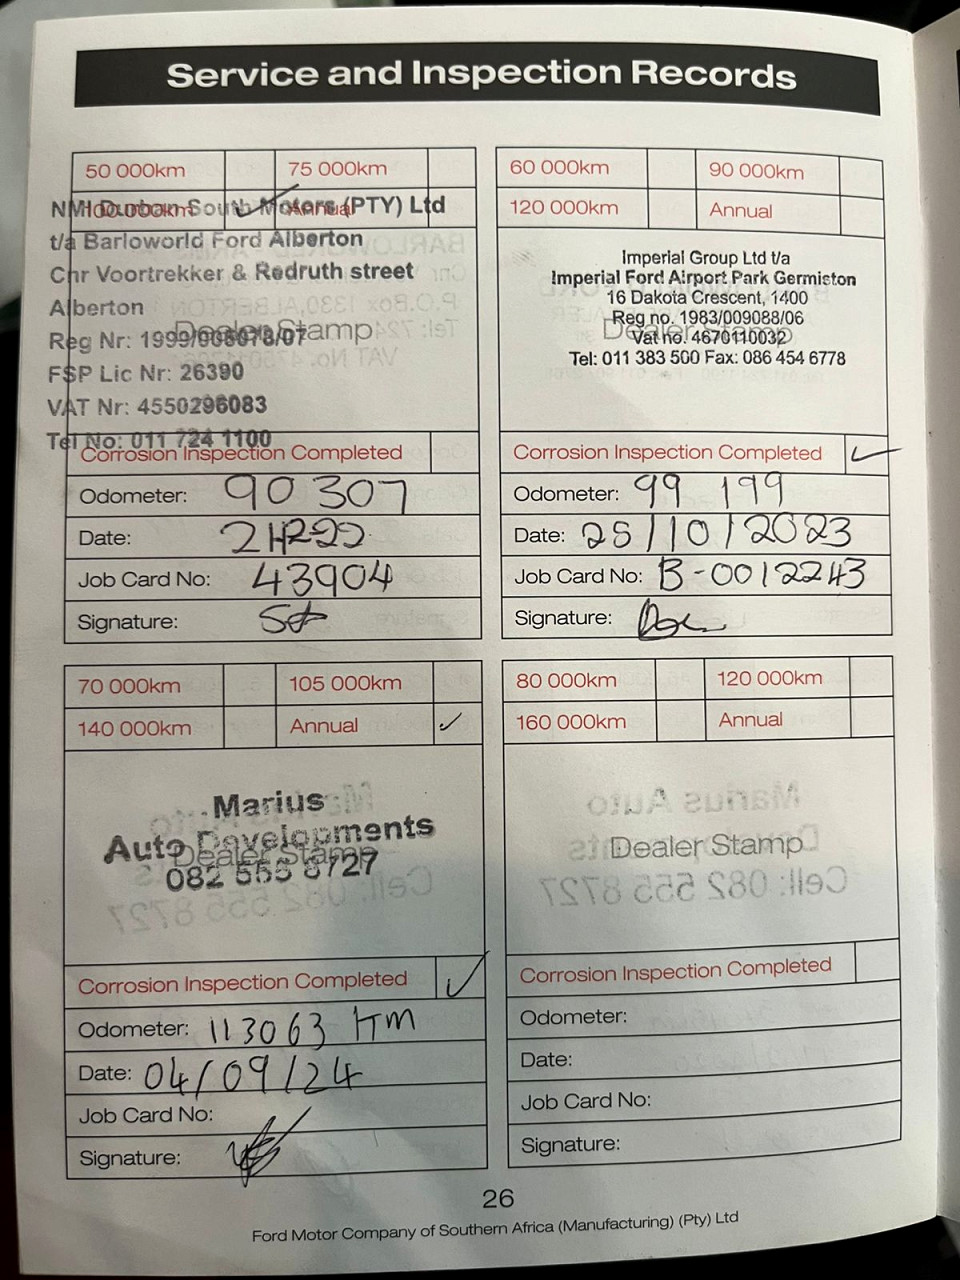 Service and Inspection Records
50 000km
75 000km
100 000km
Annual
NMI Durban South Motors (PTY) Ltd
t/a Barloworld Ford Alberton
Cnr Voortrekker & Redruth street
Alberton
Dealer Stamp
Reg Nr: 1999/908078/07
FSP Lic Nr: 26390
VAT Nr: 4550296083
Tel No: 011 724 1100
Corrosion Inspection Completed
Odometer: 90 307
Date:
Job Card No: 43904
Signature:
60 000km
90 000km
120 000km
Annual
Imperial Group Ltd t/a
Imperial Ford Airport Park Germiston
16 Dakota Crescent, 1400
Reg no. 1983/009088/06
Dealer Stamp
Vat no. 4670110032
Tel: 011 383 500 Fax: 086 454 6778
Corrosion Inspection Completed
Odometer: 99 199
Date: 25/10/2023
Job Card No: B-0012243
Signature:
70 000km
105 000km
140 000km
Annual
Marius
Auto Developments
Dealer Stamp
082 555 8727
Corrosion Inspection Completed
Odometer: 113063 Km
Date: 04/09/24
Job Card No:
Signature:
80 000km
120 000km
160 000km
Annual
Dealer Stamp
Corrosion Inspection Completed
Odometer:
Date:
Job Card No:
Signature:
26
Ford Motor Company of Southern Africa (Manufacturing) (Pty) Ltd